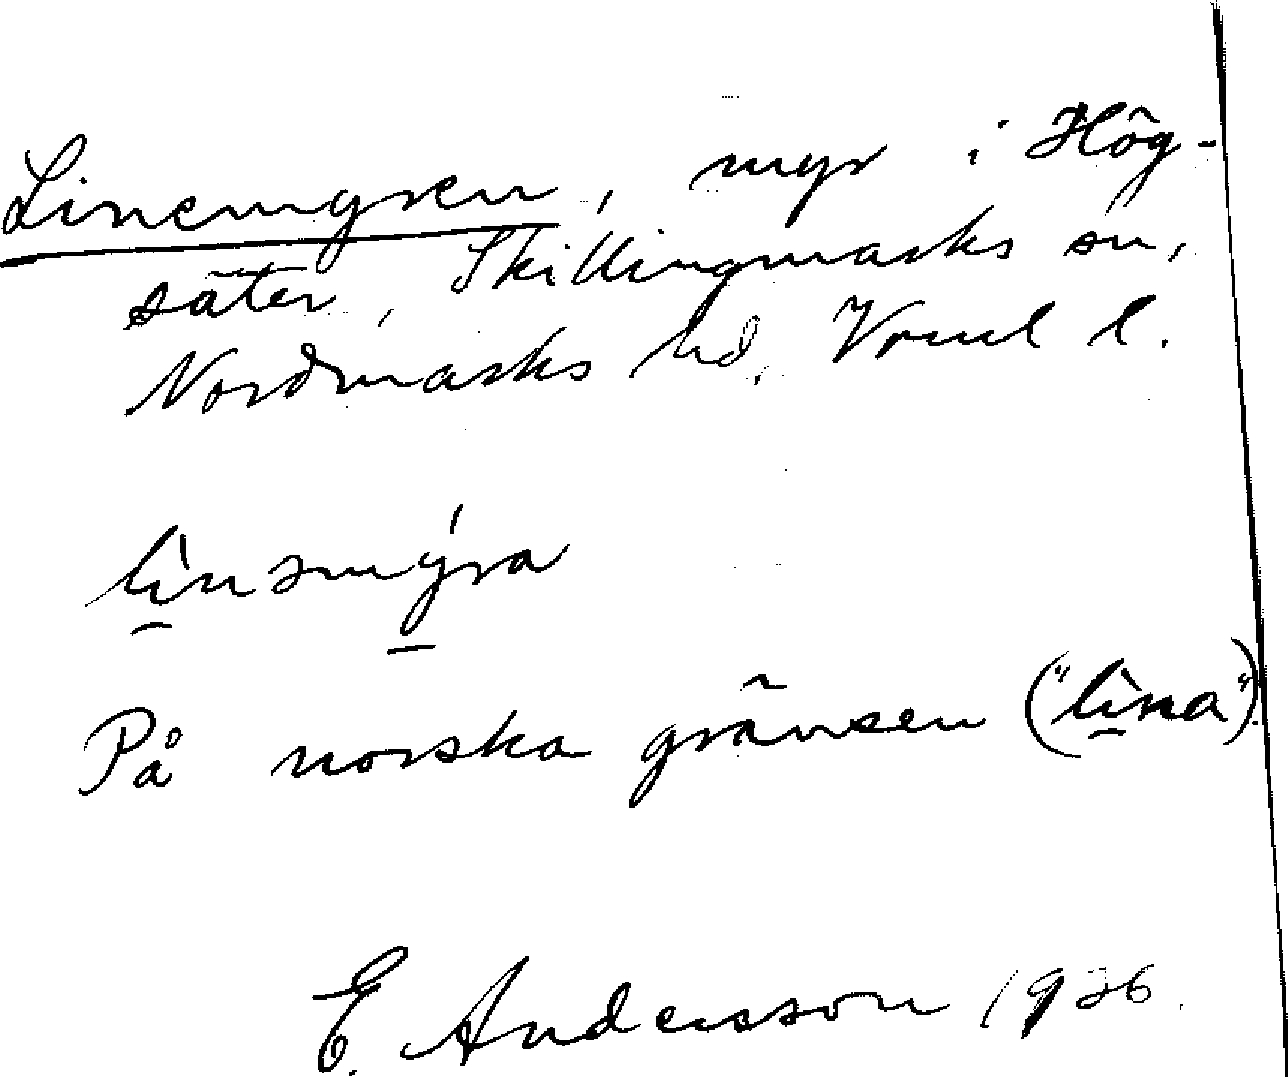 Linemyren, myr i Hög-
säter, Skillingmarks sn,
Nordmarks hd, Vrml l.
lìnəmýra
På norska gränsen ("lìna").
E. Andersson 1926.